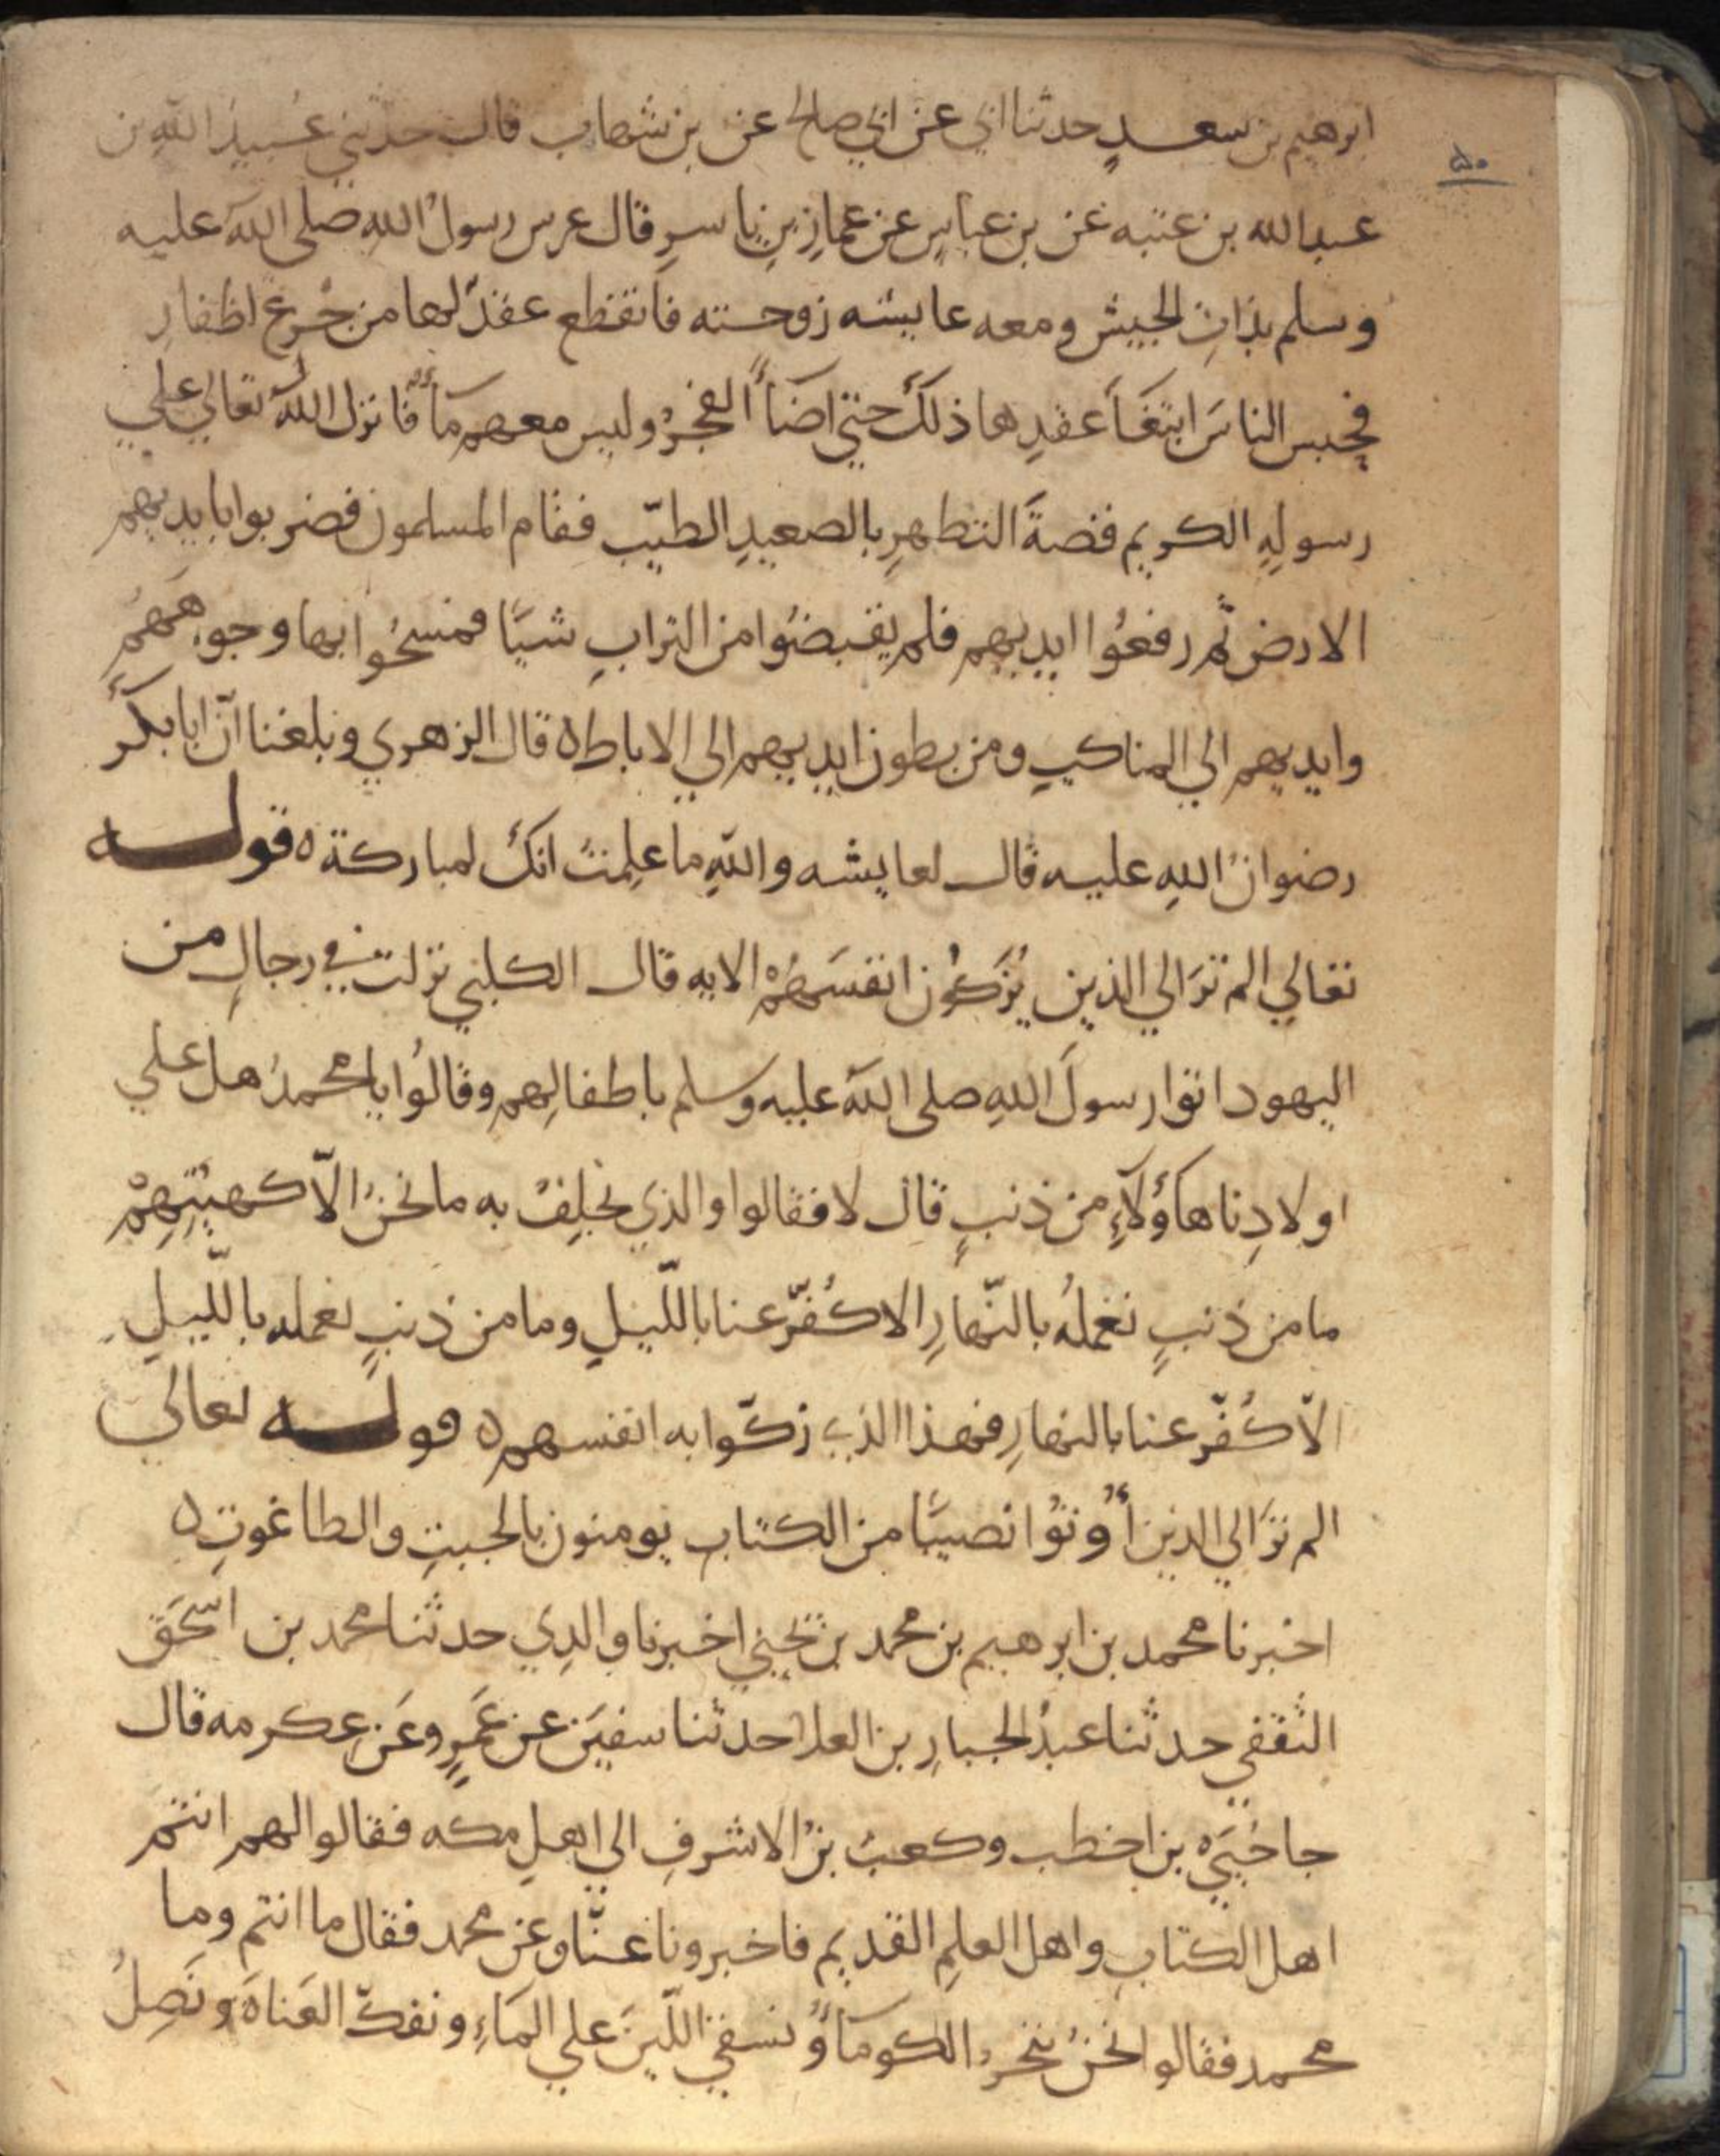 ٥٠
ابرهيم بن سعدٍ حدثنا ابي عن ابي صالح عن بن شهاب قال حدثني عُبيدُ اللهِ بن
عبد الله بن عتبه عن بن عباسٍ عن عمارِ بنِ ياسرٍ قال عرس رسولُ اللهِ صلى اللهُ عليه
وسلم بذاتِ الجيش ومعه عايشه زوجته فانقطع عقدٌ لها من جَزعِ اظفارِ
فحبس الناسَ ابتغَآَ عقدِها ذلك حتي اضَآَ الفجرُ وليس معهم مآءٌ فانزل اللهُ تعالي علي
رسولِهِ الكريم قصةَ التطهرِ بالصعيدِ الطيّب فقام المسلمون فضربوا بايديهم
الارض ثُم رفعُوا ايديهم فلم يقبضُوا من الترابِ شيًا فمسحُوا بها وجوههَم
وايديهم الي المناكبِ ومن بطون ايديهم الي الاباط ه قال الزهري وبلغنا انّ ابا بكر
رضوانُ اللهِ عليه قال لعايشه واللهِ ما علِمتُ انكِ لمباركة ه قولـــه
تعالي الم تَرَ الي الذين يُزَكُّون انفسَهُمْ الايه قال الكلبي نزلت في رجالٍ من
اليهود اتوا رسولَ اللهِ صلى اللهُ عليه وسلم باطفالِهم وقالُوا يا محمدُ هل علي
اولادِنا هآؤُلَآءِ من ذنبٍ قال لا فقالوا والذي نحلِفُ به ما نحنُ الّا كهيئَتِهِمْ
ما من ذنبٍ نعملُهُ بالنّهارِ الا كُفّر عنا باللّيلِ وما من ذنبٍ نعمله باللّيلِ
الّا كُفّر عنا بالنهارِ فهذا الذي زكّوا به انفسهم ه قولـــه تعالي
الم تَرَ الي الذين أُوتُوا نصيبًا من الكتابِ يومنون بالجبتِ والطاغوتِ ه
اخبرنا محمد بن ابرهيم بن محمد بن يحيي اخبرنا والدِي حدثنا محمد بن اسحَق
الثقفي حدثنا عبدُ الجبارِ بن العلا حدثنا سفيَن عن عَمرٍو عَن عِكرمه قال
جا حُيَيّ بن اخطب وكعبُ بنُ الاشرفِ الي اهلِ مكه فقالوا لهم انتم
اهل الكتابِ واهل العلمِ القديم فاخبرونا عنّا وعن محمد فقال ما انتم وما
محمد فقالوا نحنُ ننحرُ الكومآَ ونسقي اللّبنَ علي المَآءِ ونفكّ العَناةَ ونَصِلُ